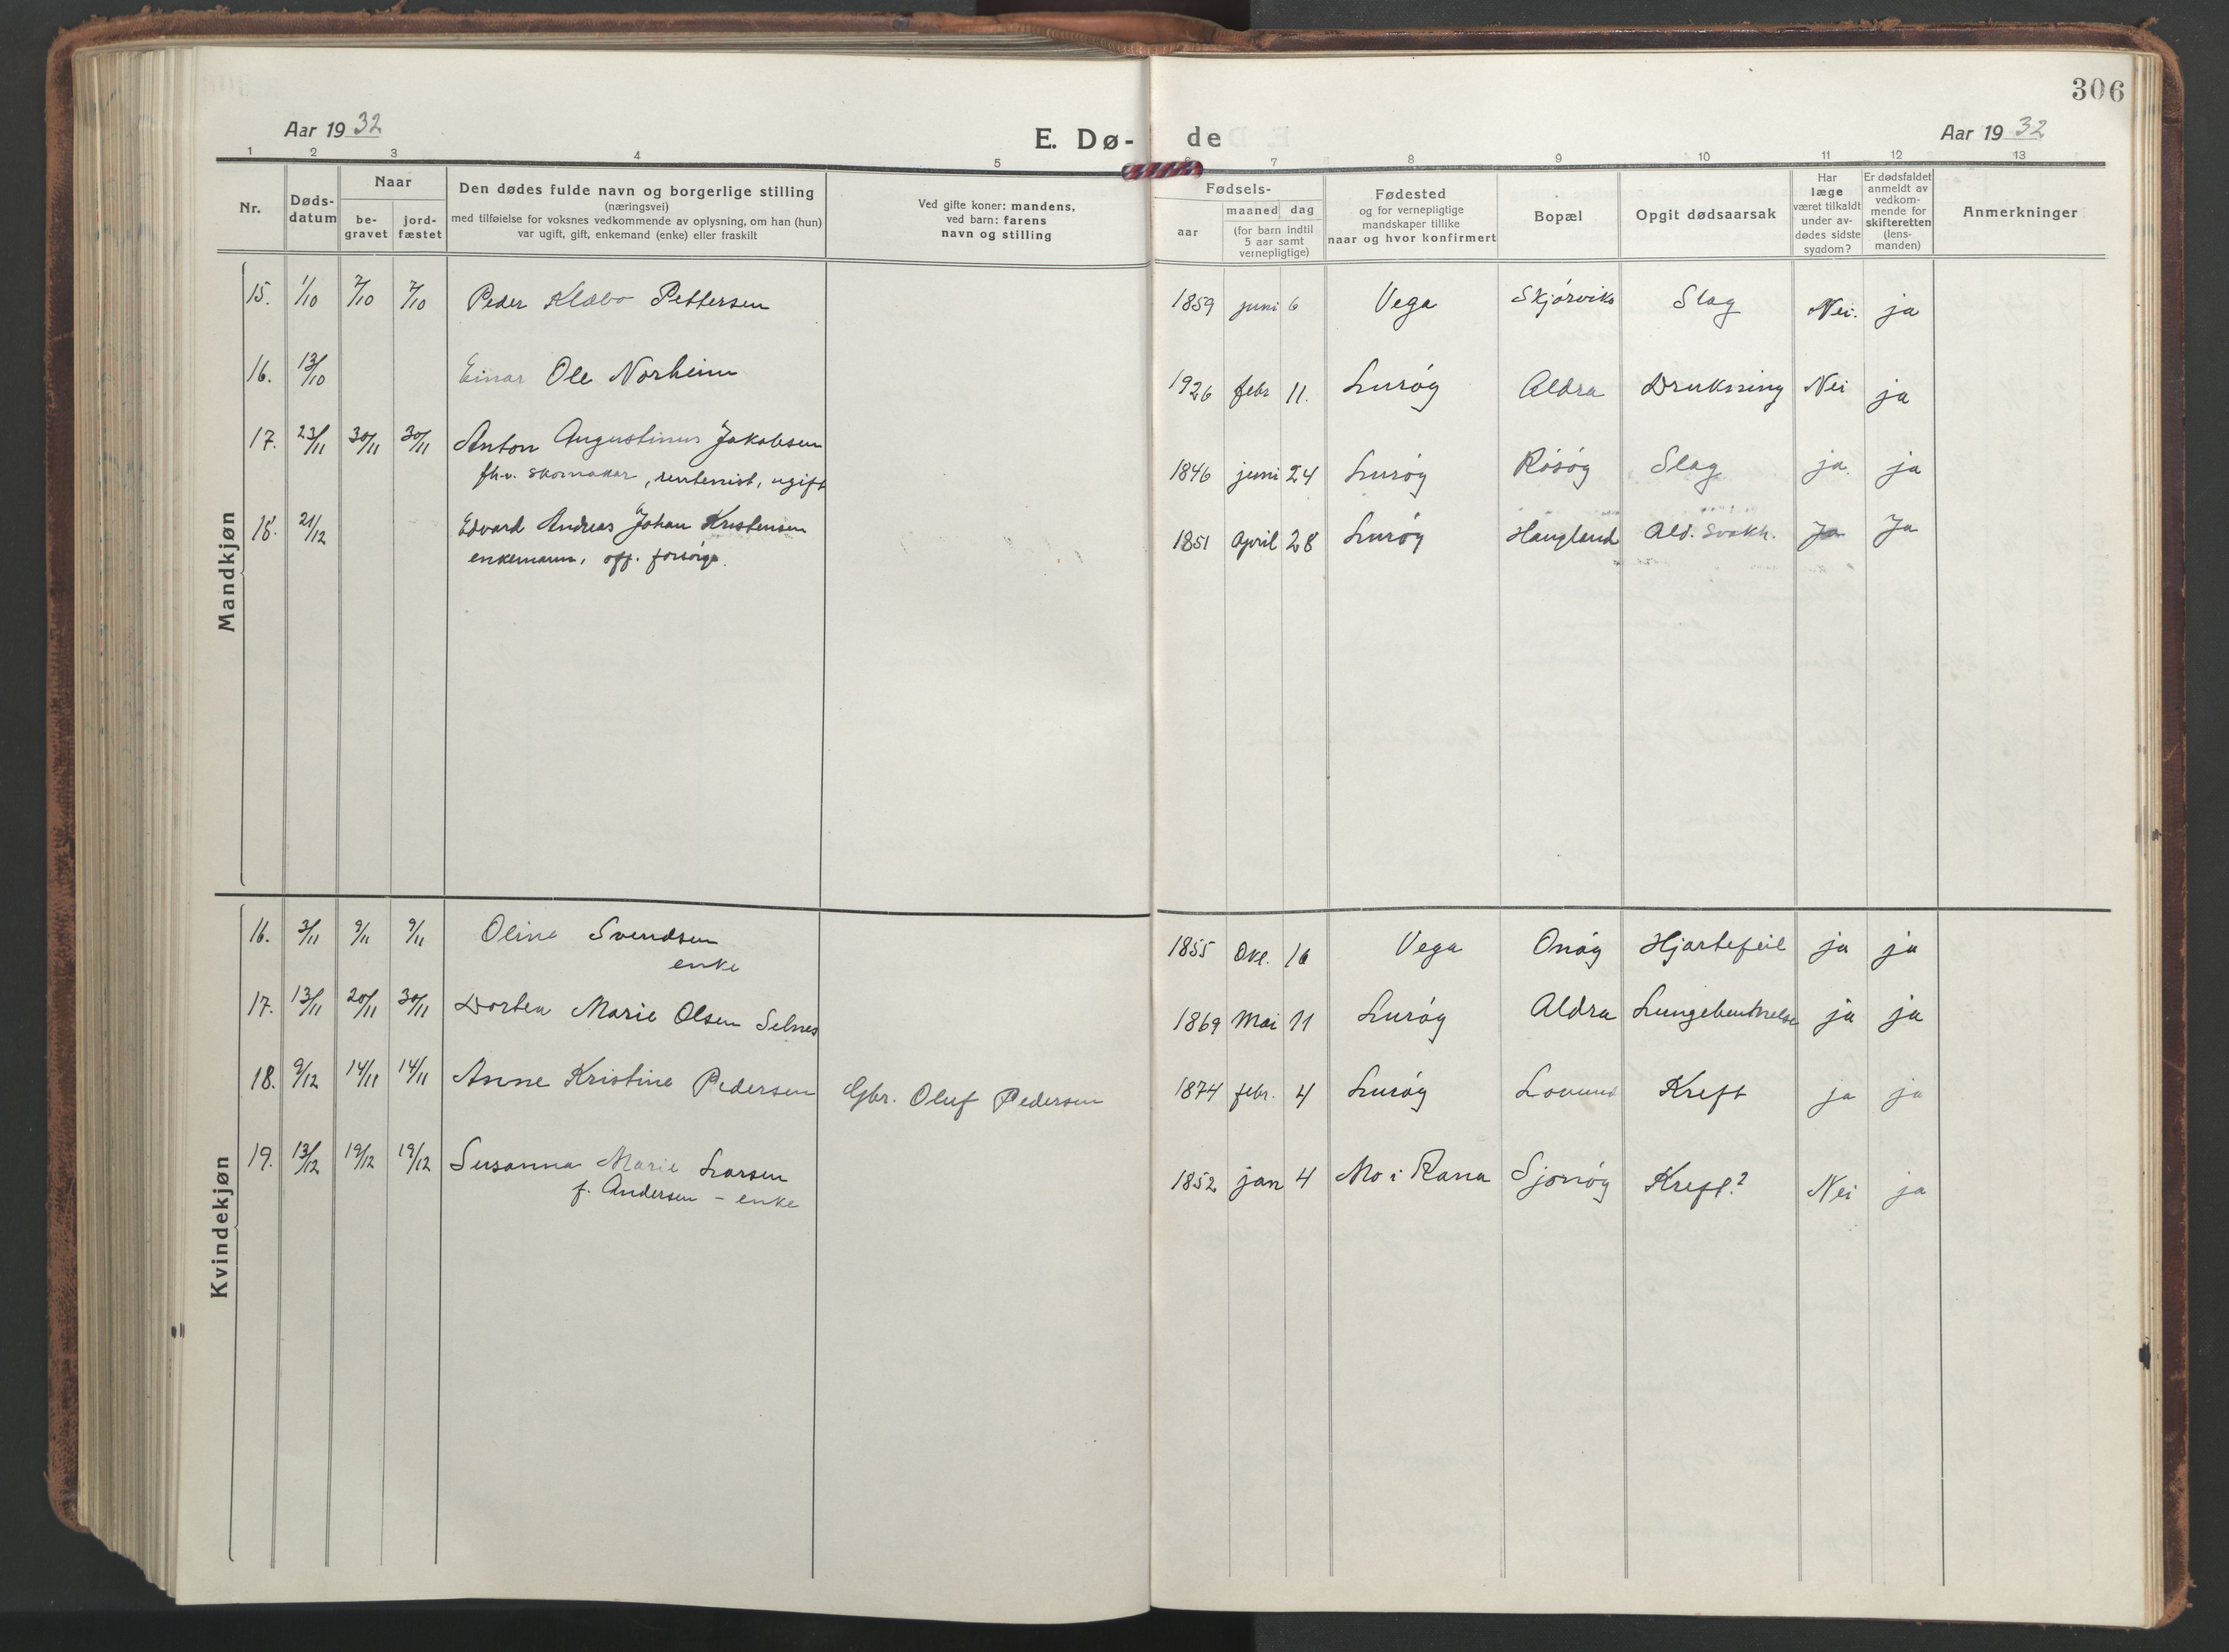 306
Aar 19 32
E. Dø- de
Aar 19 32
1 2 3 4 5 6 7 8 9 10 11 12 13
Nr.
Døds-
datum
Naar
be-
gravet
jord-
fæstet
Den dødes fulde navn og borgerlige stilling
(næringsvei)
med tilføielse for voksnes vedkommende av oplysning, om han (hun)
var ugift, gift, enkemand (enke) eller fraskilt
Ved gifte koner: mandens,
ved barn: farens
navn og stilling
Fødsels-
aar
maaned dag
(for barn indtil
5 aar samt
vernepligtige)
Fødested
og for vernepligtige
mandskaper tillike
naar og hvor konfirmert
Bopæl
Opgit dødsaarsak
Har
læge
været tilkaldt
under av-
dødes sidste
sygdom?
Er dødsfaldet
anmeldt av
vedkom-
mende for
skifteretten
(lens-
manden)
Anmerkninger
Mandkjøn
15. 1/10 7/10 7/10 Peder Klæbo Pettersen 1859 juni 6 Vega Skjørvika Slag Nei. ja
16. 13/10 Einar Ole Norheim 1926 febr 11. Lurøy Aldra Drukning Nei ja
17. 23/11 30/11 30/11 Anton Augustinus Jakobsen 1846 juni 24 Lurøy Råsøy Slag ja. ja
fh.v. skomaker, rentenist, ugift
18. 21/12 Edvard Andreas Johan Kristensen 1851 April 28 Lurøy Haugland Ald. svakh. Ja Ja
enkemann, off. forsørge.
Kvindekjøn
16. 3/11 9/11 9/11 Oline Svendsen 1855 Okt. 16 Vega Onøy Hjartefeil ja ja
enke
17. 13/11 20/11 30/11 Dortea Marie Olsen Selnes 1869 Mai 11 Lurøy Aldra ja ja
18. 9/12 14/11 14/11 Anne Kristine Pedersen Gbr. Oluf Pedersen 1874 febr. 4 Lurøy Lovund Kreft ja ja
19. 13/12 19/12 19/12 Susanna Marie Larsen 1852 jan 4 Mo i Rana Sjonøy Kreft? Nei ja
f. Andersen - enke